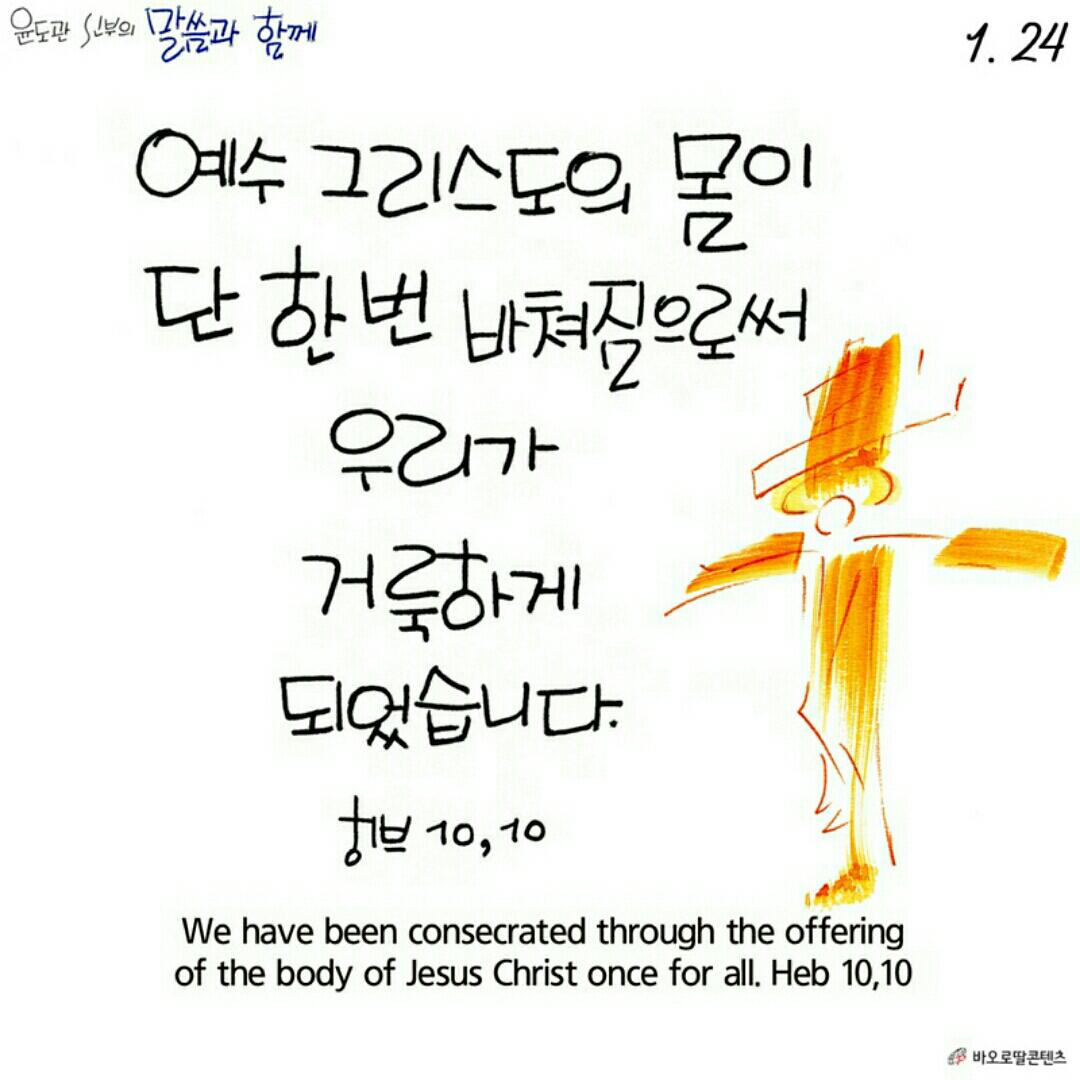 윤도관 신부의 말씀과 함께
1. 24
예수 그리스도의 몸이
단 한 번 바쳐짐으로써
우리가
거룩하게
되었습니다.
히브 10,10
We have been consecrated through the offering
of the body of Jesus Christ once for all. Heb 10,10
바오로딸콘텐츠